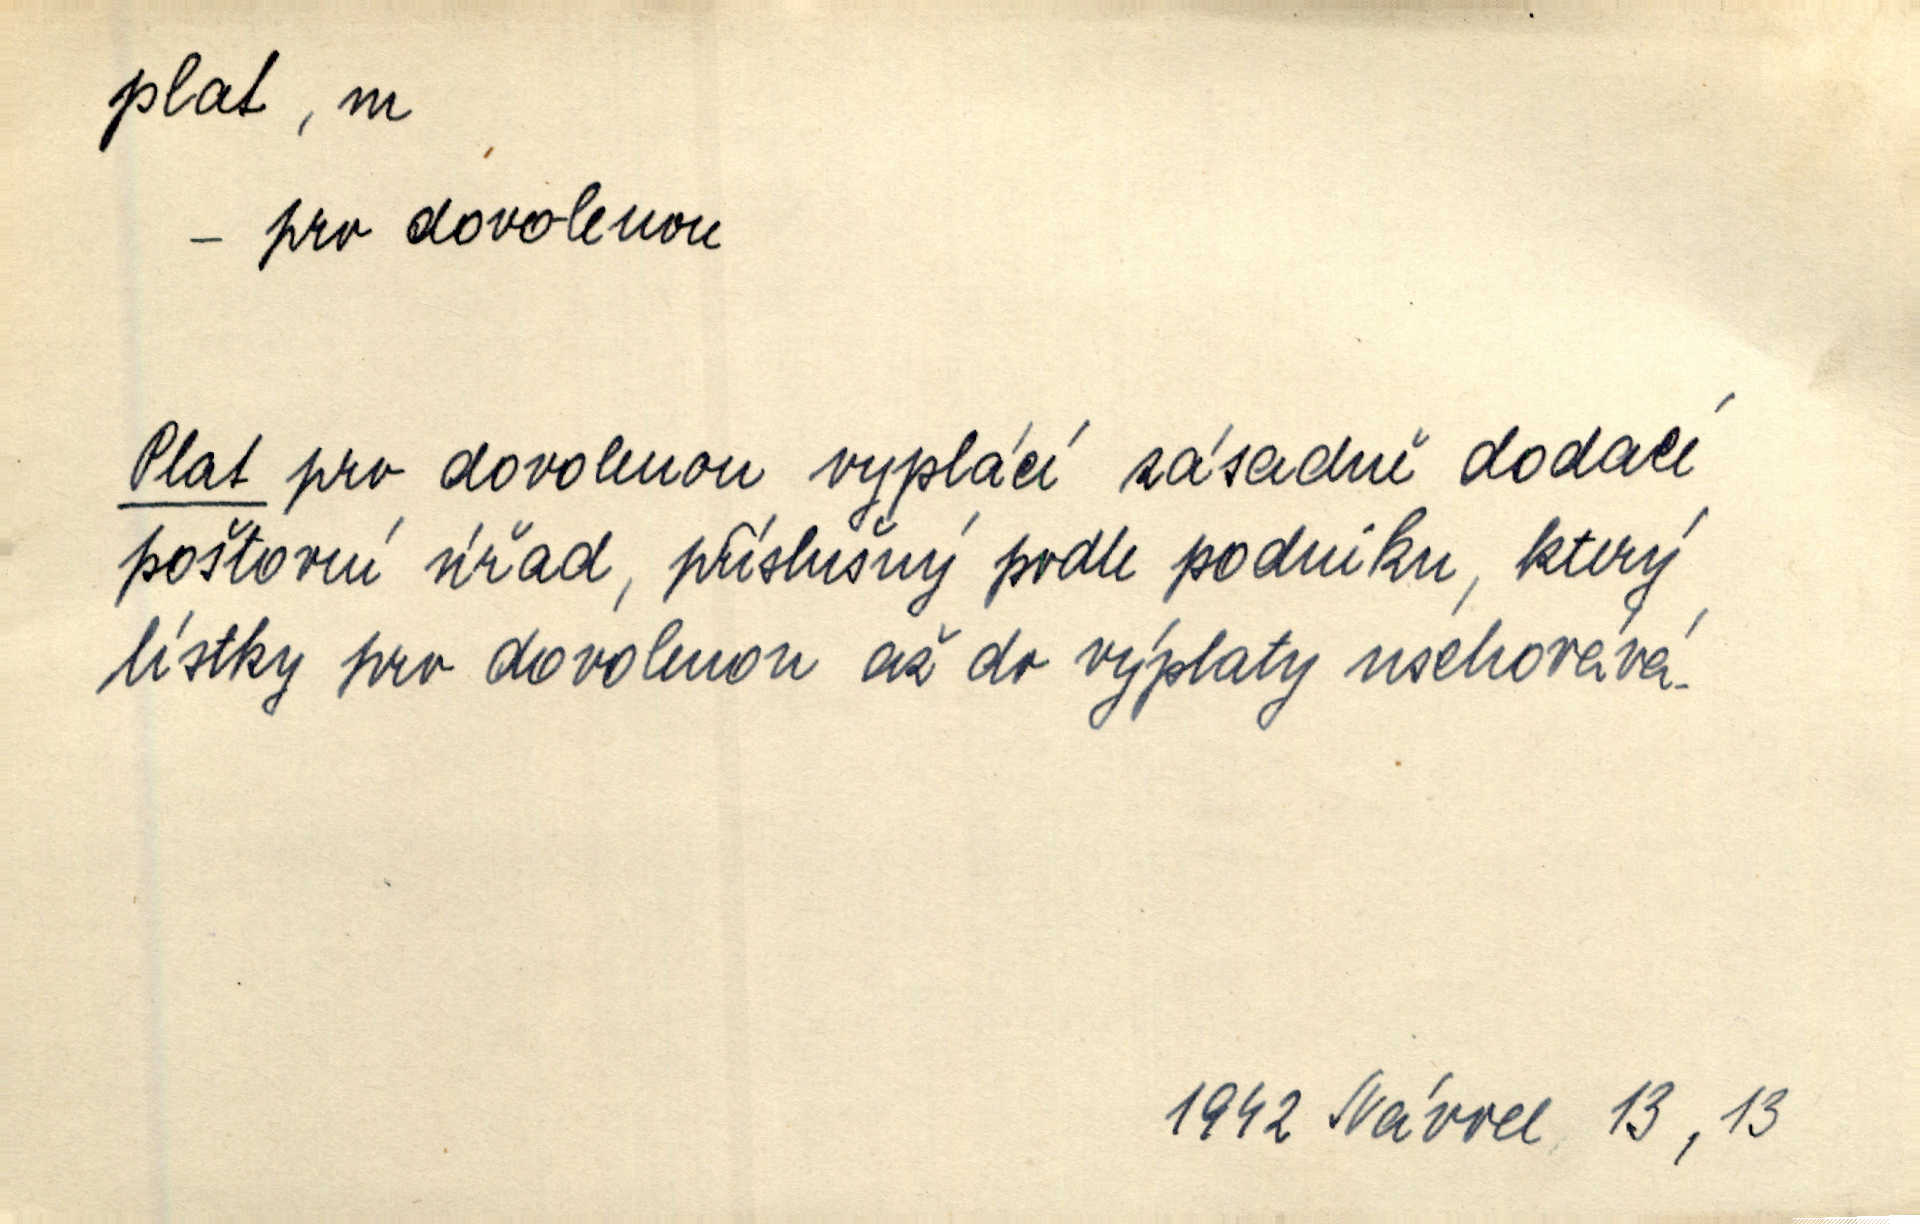 plat, m
- pro dovolenou
Plat pro dovolenou vyplácí zásadně dodací
poštovní úřad, příslušný podle podniku, který
lístky pro dovolenou až do výplaty uschovává.
1942 Návod 13, 13